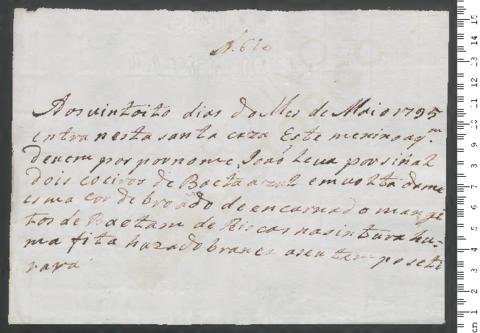 N. 610
Aos vintoito dias do Mes de Maio 1795
intra nesta santa caza Este menino aq.m
devem por por nome, João Leva por siñal
dois coeiros de Baeta azul em volta dame
esma cor de broado de encarnado mangi
tos de Baetam de Riscas nasintura hu
ma fita hazado branca a seu tempo seti
rara